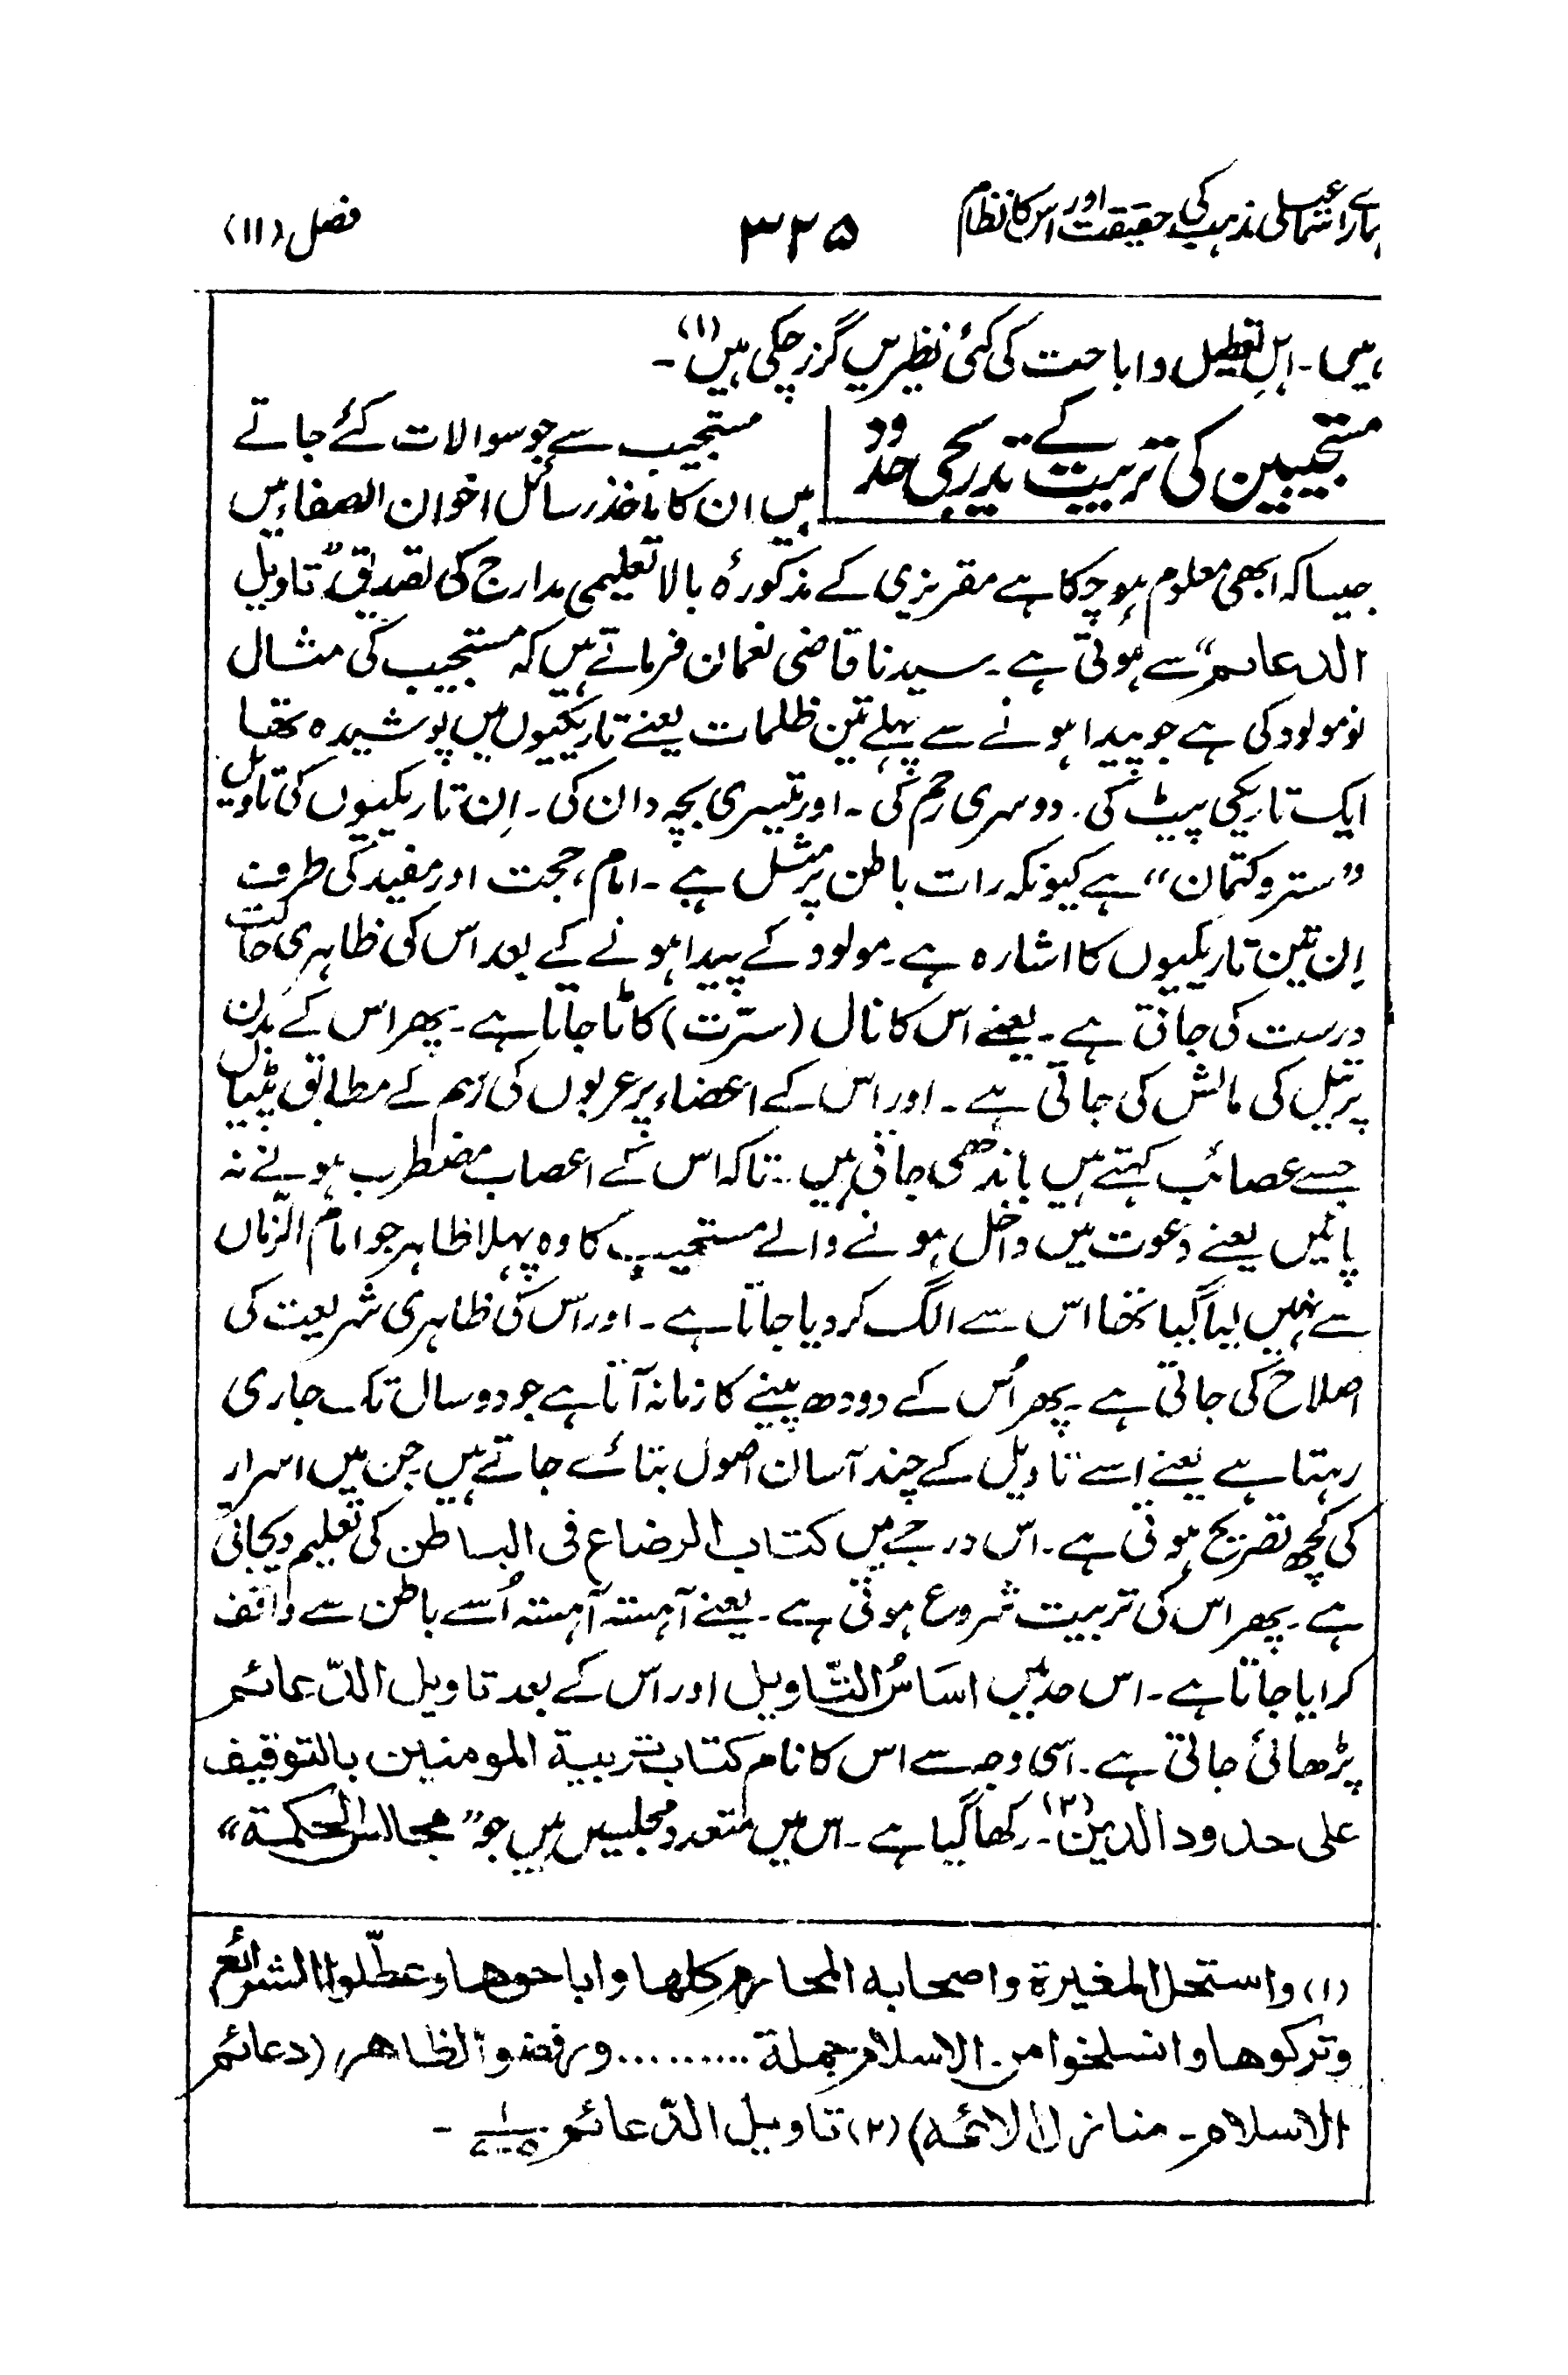 ہمارے اسماعیلی مذہب کی حقیقت اور اس کا نظام ۳۲۵ فصل (۱۱)
ہیں۔ اہلِ تعطیل و اباحت کی کئی نظیریں گزر چکی ہیں(۱)۔
مستجیبین کی تربیت کے تدریجی حدود
مستجیب سے جو سوالات کئے جاتے
ہیں ان کا ماخذ رسائل اخوان الصفاء ہیں
جیسا کہ ابھی معلوم ہو چکا ہے مقریزی کے مذکورۂ بالا تعلیمی مدارج کی تصدیق "تاویل
الدعائم" سے ہوتی ہے۔ سیدنا قاضی نعمان فرماتے ہیں کہ مستجیب کی مثال
نومولود کی ہے جو پیدا ہونے سے پہلے تین ظلمات یعنے تاریکیوں میں پوشیدہ تھا
ایک تاریکی پیٹ کی۔ دوسری رحم کی۔ اور تیسری بچہ دان کی۔ اِن تاریکیوں کی تاویل
"ستر و کتمان" ہے کیونکہ رات باطن پر مثل ہے۔ امام، حجت اور مفید کی طرف
اِن تین تاریکیوں کا اشارہ ہے۔ مولود کے پیدا ہونے کے بعد اس کی ظاہری حالت
درست کی جاتی ہے۔ یعنے اس کا نال (سرّت) کاٹا جاتا ہے۔ پھر اس کے بدن
پر تیل کی مالش کی جاتی ہے۔ اور اس کے اعضاء پر عربوں کی رسم کے مطابق پٹیاں
جسے عصائب کہتے ہیں باندھی جاتی ہیں۔ تاکہ اس کے اعصاب مضطرب ہونے نہ
پائیں یعنے دعوت میں داخل ہونے والے مستجیب کا وہ پہلا ظاہر جو امام الزّماں
سے نہیں لیا گیا تھا اس سے الگ کر دیا جاتا ہے۔ اور اس کی ظاہری شریعت کی
اصلاح کی جاتی ہے۔ پھر اُس کے دودھ پینے کا زمانہ آتا ہے جو دو سال تک جاری
رہتا ہے یعنے اسے تاویل کے چند آسان اصول بتائے جاتے ہیں جن میں اسرار
کی کچھ تصریح ہوتی ہے۔ اس درجے میں کتاب الرضاع فی الباطن کی تعلیم دیجاتی
ہے۔ پھر اس کی تربیت شروع ہوتی ہے۔ یعنے آہستہ آہستہ اُسے باطن سے واقف
کرایا جاتا ہے۔ اس حد میں اسَاسُ التّاویل اور اس کے بعد تاویل الدّعائم
پڑھائی جاتی ہے۔ اسی وجہ سے اس کا نام کتاب تربیة المومنین بالتوقیف
علی حدود الدین(۲)۔ رکھا گیا ہے۔ اس میں متعدد مجلسیں ہیں جو "مجالس الحکمة"
(۱) واستحل المغیرة واصحابه المحارم کلها واباحوها وعطّلوا الشرائع
وترکوها وانسلخوا من الاسلام جملة .......... ورفضوا الظاهر (دعائم
الاسلام۔ منازل الائمه) (۲) تاویل الدّعائم ۔